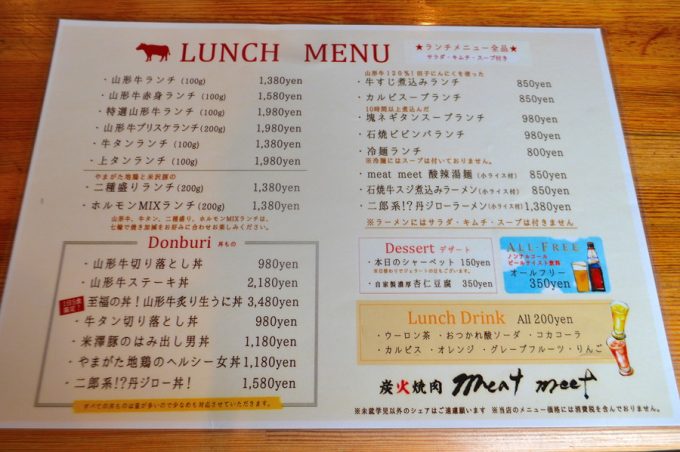 LUNCH MENU
★ランチメニュー全品★
サラダ・キムチ・スープ付き
・山形牛ランチ (100g) 1,380yen
・山形牛赤身ランチ (100g) 1,580yen
・特選山形牛ランチ (100g) 1,980yen
・山形牛ブリスケランチ(200g) 1,980yen
・牛タンランチ (100g) 1,380yen
・上タンランチ (100g) 1,980yen
やまがた地鶏と米沢豚の
・二種盛りランチ (200g) 1,380yen
・ホルモンMIXランチ (200g) 1,380yen
山形牛、牛タン、二種盛り、ホルモンMIXランチは、
七輪で焼き加減をお好みに合わせお楽しみください。
Donburi 丼もの
・山形牛切り落とし丼 980yen
・山形牛ステーキ丼 2,180yen
1日5食限定!
至福の丼!山形牛炙り生うに丼 3,480yen
・牛タン切り落とし丼 980yen
・米澤豚のはみ出し男丼 1,180yen
・やまがた地鶏のヘルシー女丼 1,180yen
・二郎系!?丹ジロー丼! 1,580yen
すべての丼ものは量が多いので少なめも対応させていただきます。
山形牛120%!田子にんにくを使った
・牛すじ煮込みランチ 850yen
・カルビスープランチ 850yen
10時間以上煮込んだ
・塊ネギタンスープランチ 980yen
・石焼ビビンバランチ 980yen
・冷麺ランチ 800yen
※冷麺にはスープは付いておりません。
・meat meet 酸辣湯麺 (小ライス付) 850yen
・石焼牛スジ煮込みラーメン (小ライス付) 850yen
・二郎系!?丹ジローラーメン(小ライス付) 1,380yen
※ラーメンにはサラダ・キムチ・スープは付きません
Dessert デザート
・本日のシャーベット 150yen
・自家製濃厚杏仁豆腐 350yen
ALL-FREE
ノンアルコール
ビールテイスト飲料
オールフリー
350yen
Lunch Drink All 200yen
・ウーロン茶 ・おつかれ酸ソーダ ・コカコーラ
・カルピス ・オレンジ ・グレープフルーツ ・りんご
炭火焼肉 meat meet
※未就学児以外のシェアはご遠慮願います ※当店のメニュー価格には消費税を含んでおりません。